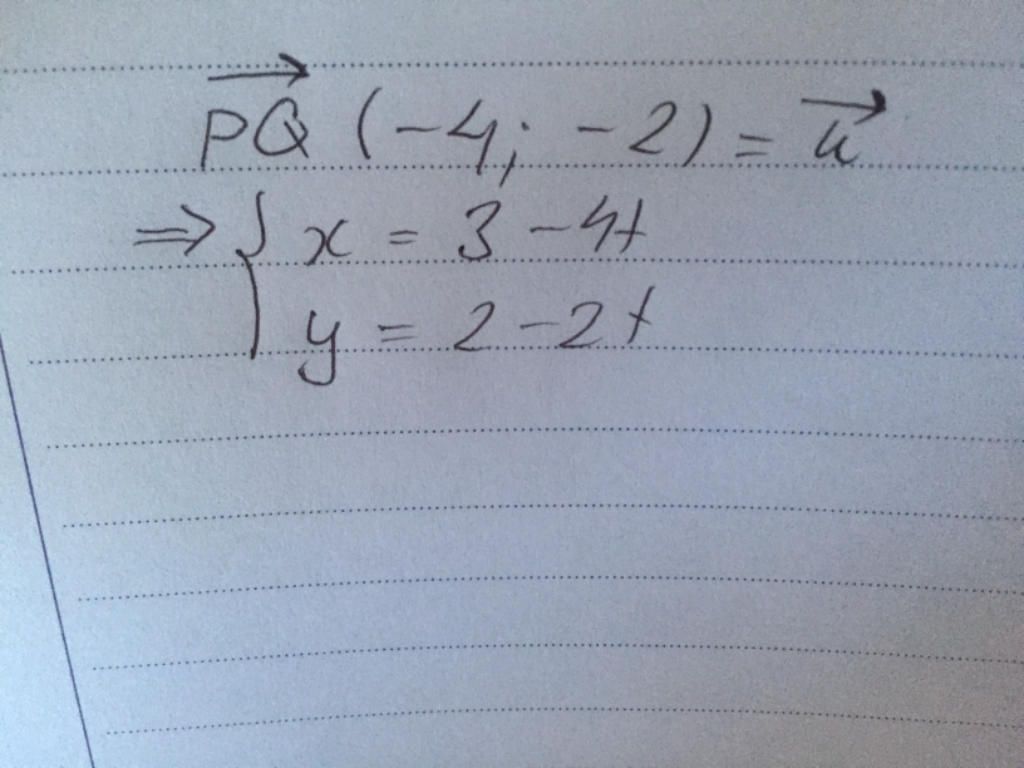 $\overrightarrow{PQ}$ (-4; -2) = $\overrightarrow{u}$
⇒ { x = 3 - 4t
y = 2 - 2t